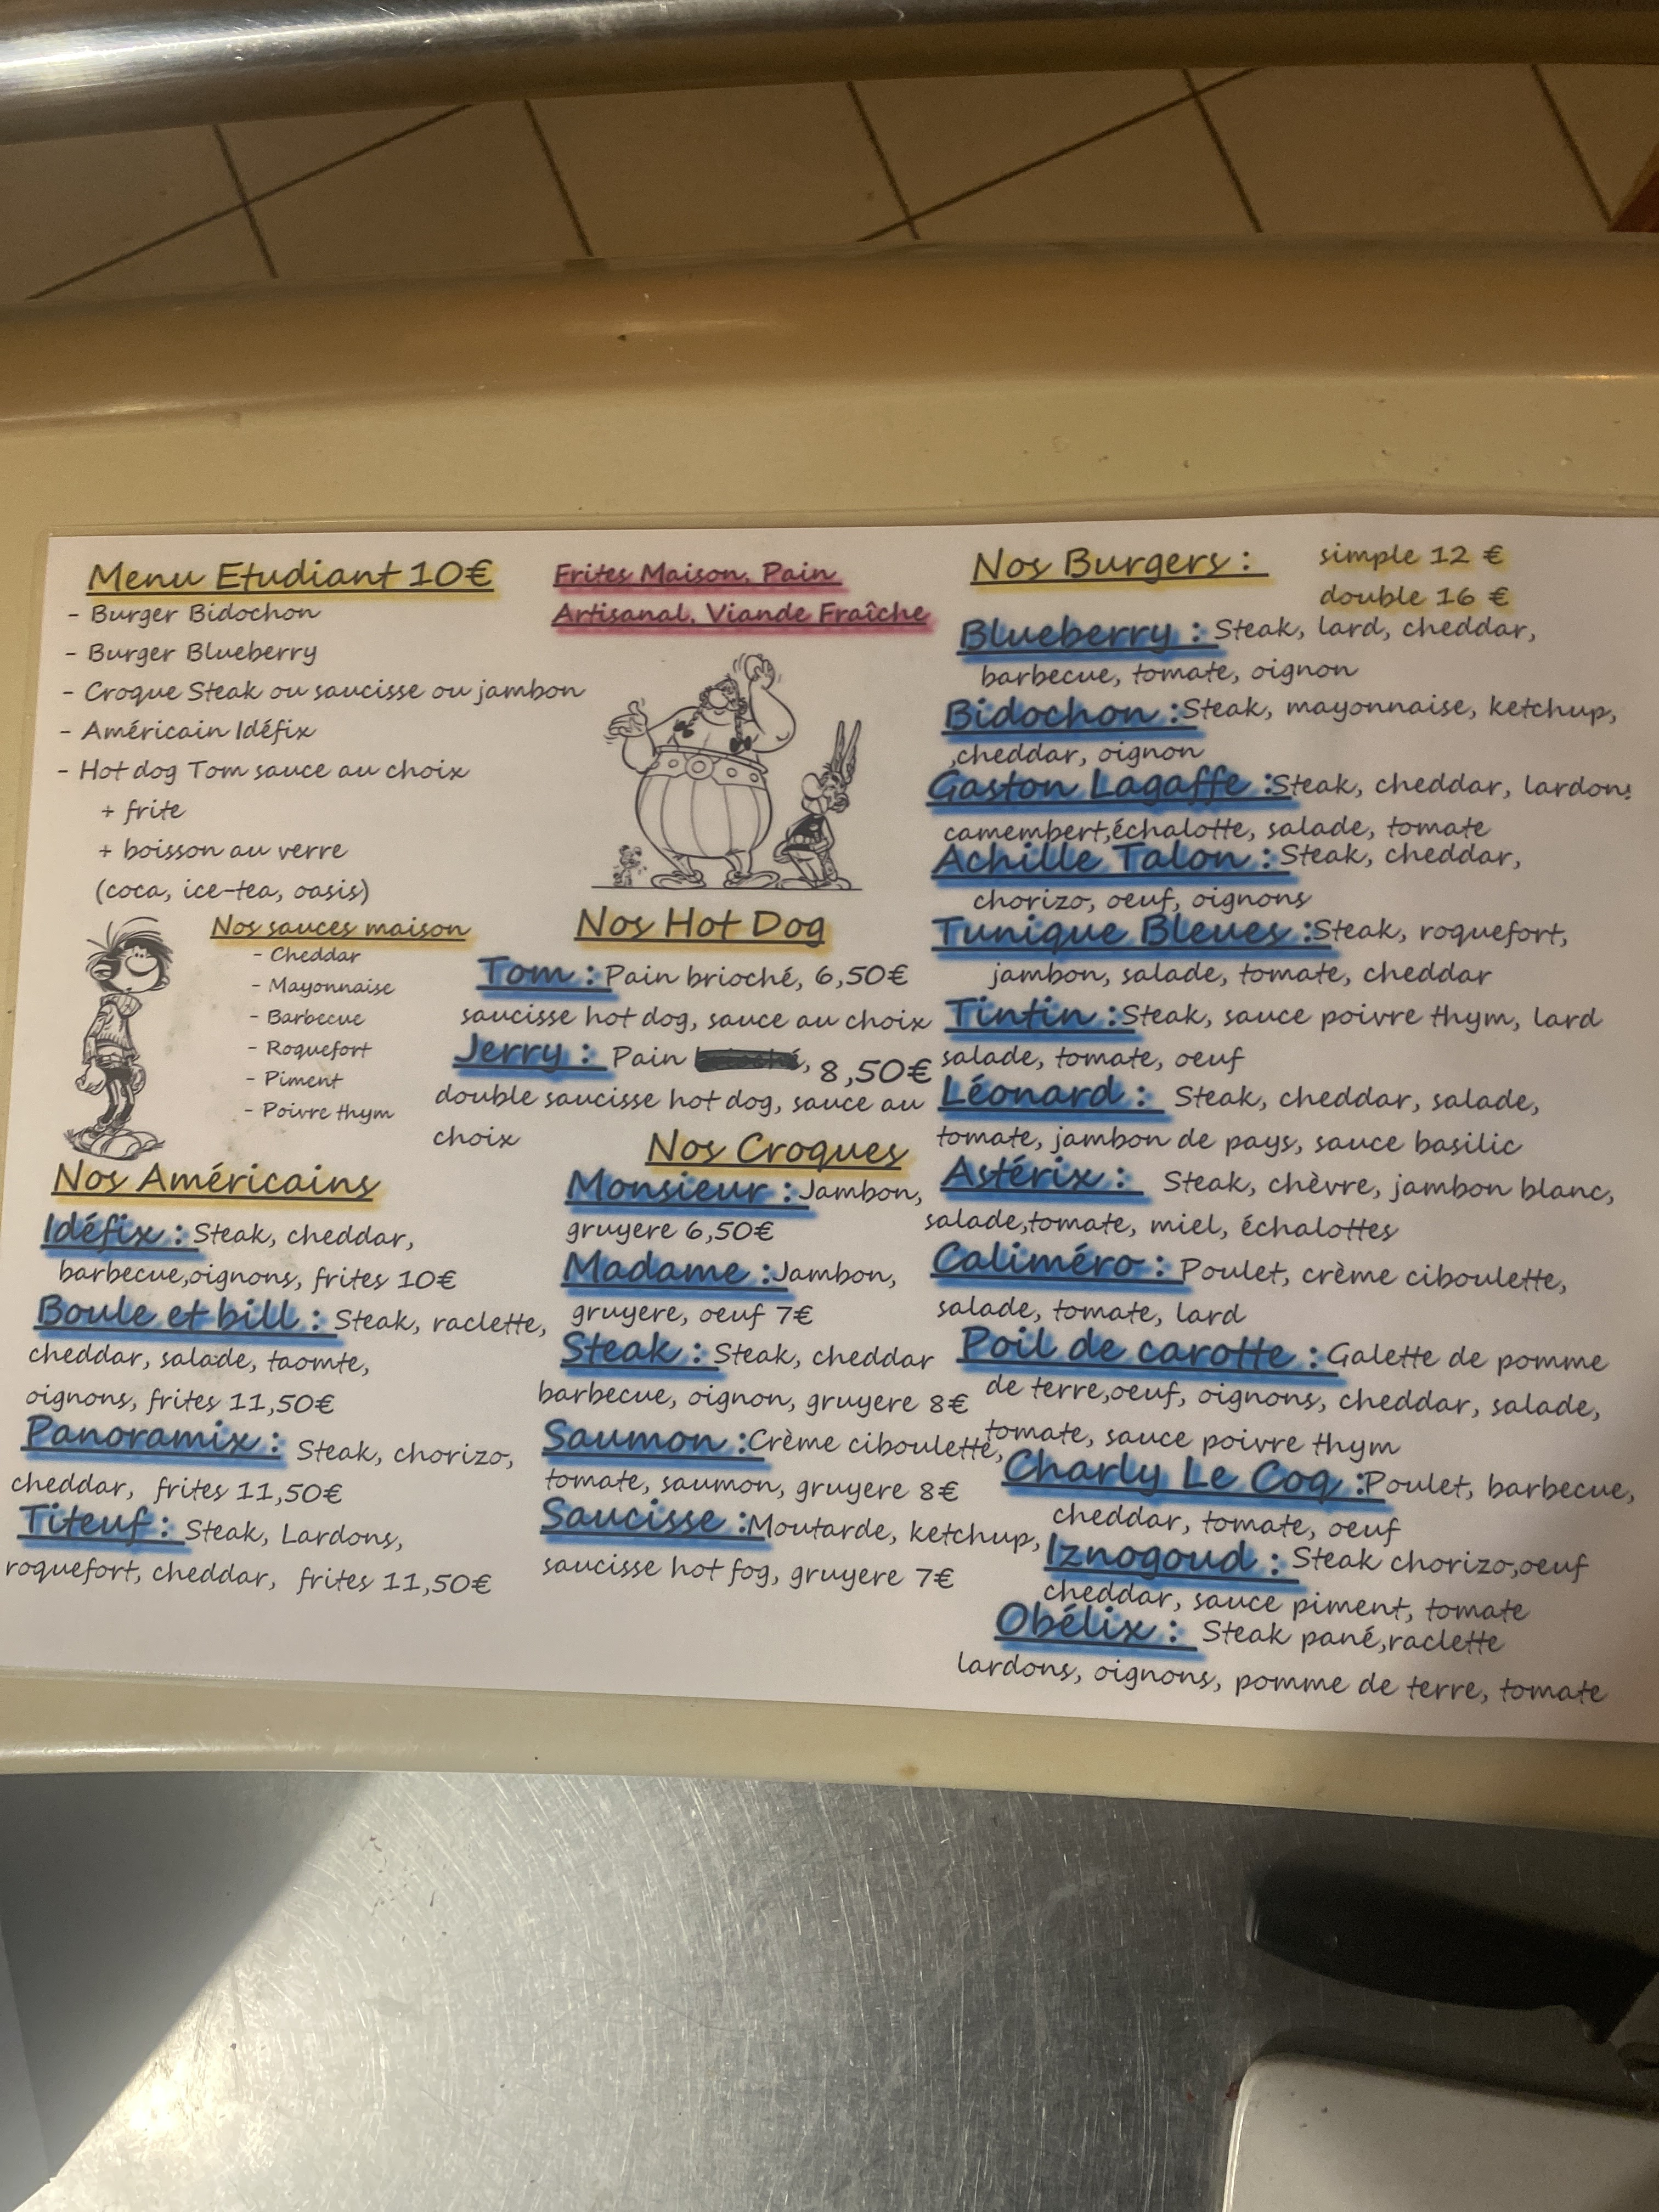 Menu Etudiant 10€
- Burger Bidochon
- Burger Blueberry
- Croque Steak ou saucisse ou jambon
- Américain Idéfix
- Hot dog Tom sauce au choix
+ frite
+ boisson au verre
(coca, ice-tea, oasis)
Nos sauces maison
- Cheddar
- Mayonnaise
- Barbecue
- Roquefort
- Piment
- Poivre thym
Nos Américains
Idéfix : Steak, cheddar,
barbecue,oignons, frites 10€
Boule et bill : Steak, raclette,
cheddar, salade, taomte,
oignons, frites 11,50€
Panoramix : Steak, chorizo,
cheddar, frites 11,50€
Titeuf : Steak, Lardons,
roquefort, cheddar, frites 11,50€
Frites Maison, Pain
Artisanal, Viande Fraîche
Nos Hot Dog
Tom : Pain brioché, 6,50€
saucisse hot dog, sauce au choix
Jerry : Pain , 8,50€
double saucisse hot dog, sauce au
choix
Nos Croques
Monsieur : Jambon,
gruyere 6,50€
Madame :Jambon,
gruyere, oeuf 7€
Steak : Steak, cheddar
barbecue, oignon, gruyere 8€
Saumon :Crème ciboulette,
tomate, saumon, gruyere 8€
Saucisse :Moutarde, ketchup,
saucisse hot fog, gruyere 7€
Nos Burgers : simple 12 €
double 16 €
Blueberry : Steak, lard, cheddar,
barbecue, tomate, oignon
Bidochon :Steak, mayonnaise, ketchup,
,cheddar, oignon
Gaston Lagaffe :Steak, cheddar, lardons
camembert,échalotte, salade, tomate
Achille Talon : Steak, cheddar,
chorizo, oeuf, oignons
Tunique Bleues :Steak, roquefort,
jambon, salade, tomate, cheddar
Tintin :Steak, sauce poivre thym, lard
salade, tomate, oeuf
Léonard : Steak, cheddar, salade,
tomate, jambon de pays, sauce basilic
Astérix : Steak, chèvre, jambon blanc,
salade,tomate, miel, échalottes
Caliméro : Poulet, crème ciboulette,
salade, tomate, lard
Poil de carotte : Galette de pomme
de terre,oeuf, oignons, cheddar, salade,
tomate, sauce poivre thym
Charly Le Coq :Poulet, barbecue,
cheddar, tomate, oeuf
Iznogoud : Steak chorizo,oeuf
cheddar, sauce piment, tomate
Obélix : Steak pané,raclette
lardons, oignons, pomme de terre, tomate